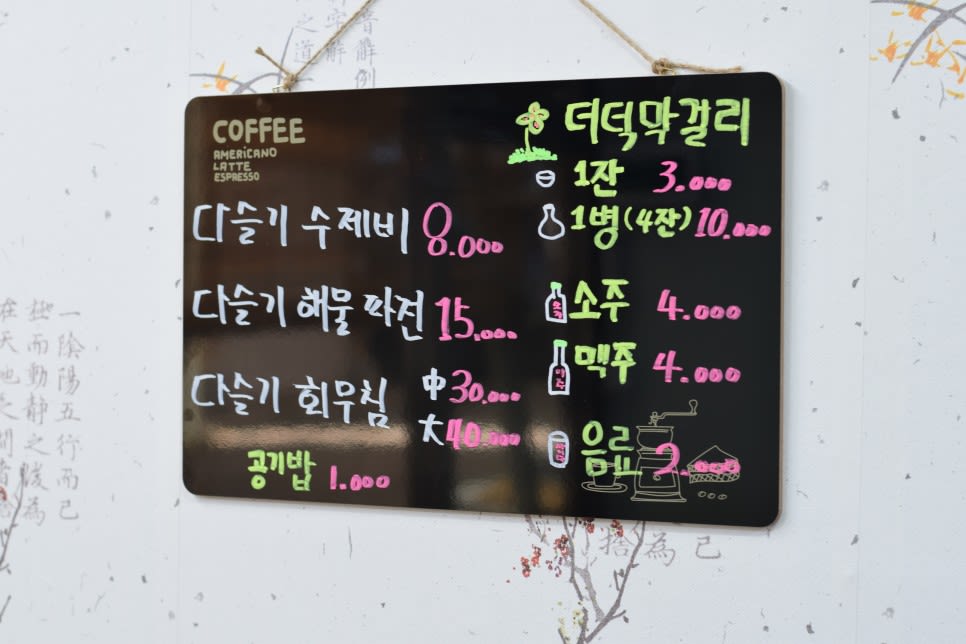 COFFEE
AMERICANO
LATTE
ESPRESSO
다슬기 수제비 8.000
다슬기 해물파전 15.000
다슬기 회무침 中 30.000
大 40.000
공기밥 1.000
더덕막걸리
1잔 3.000
1병(4잔) 10.000
소주 4.000
맥주 4.000
음료 2.000
一陰陽五行而已
捨為已